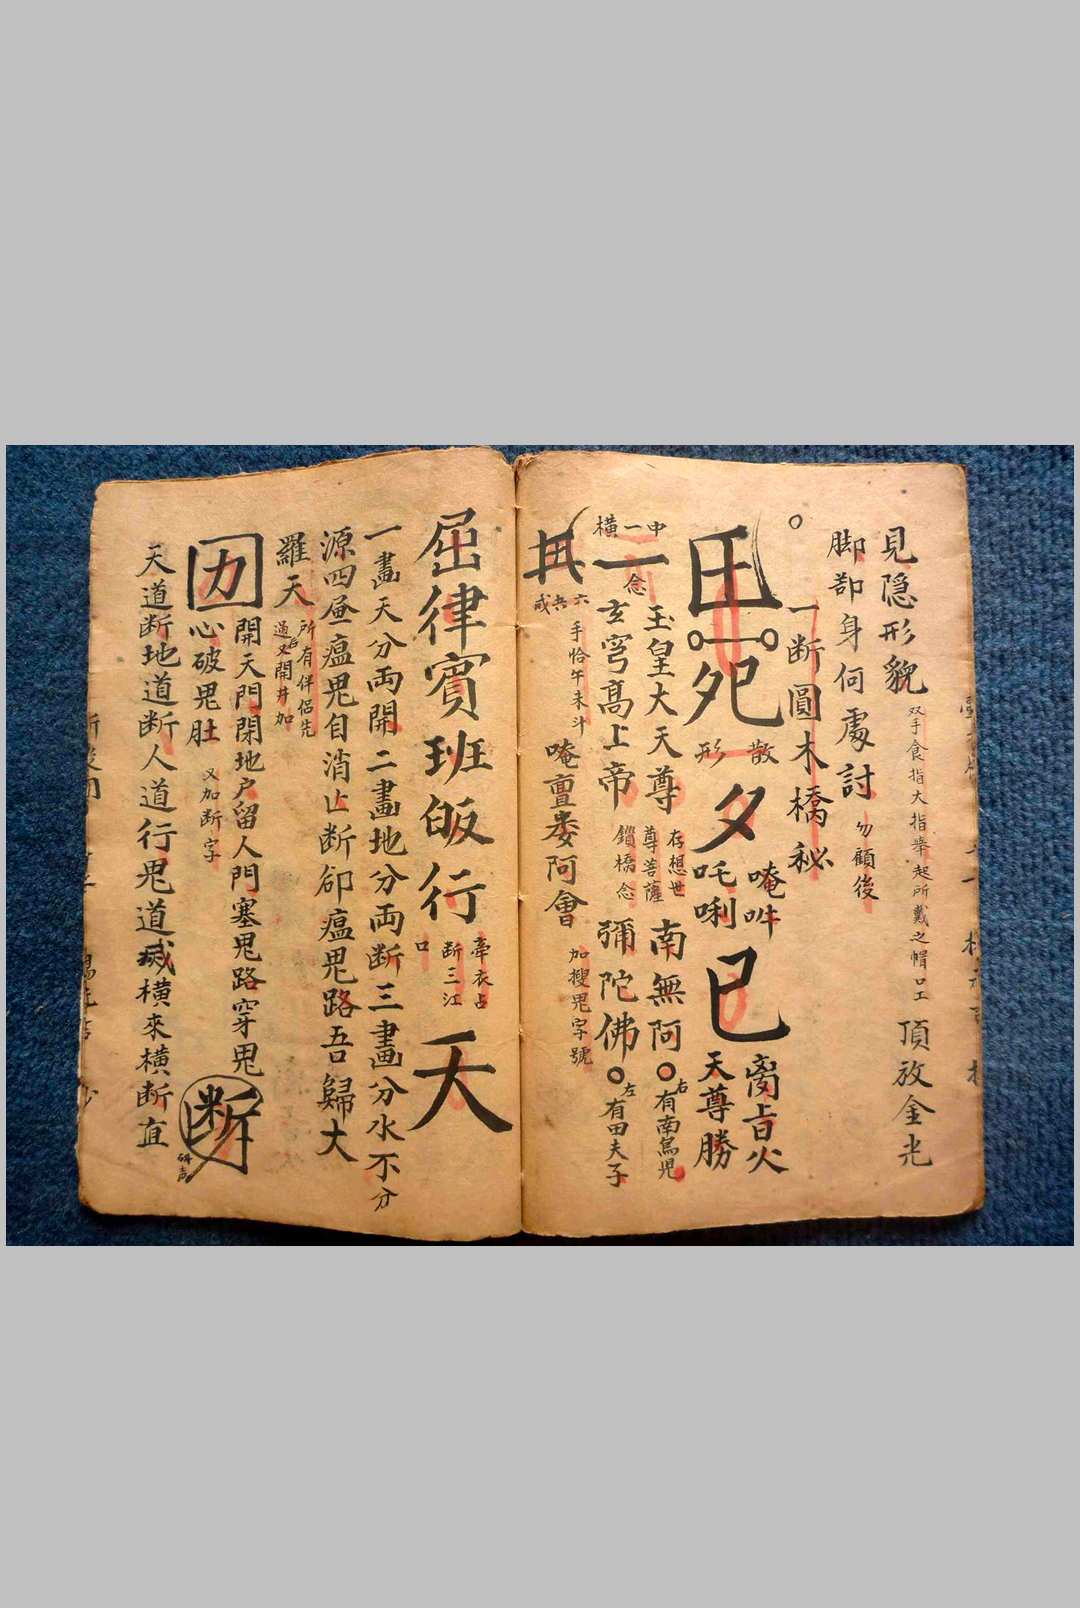 見隐形貌 双手食指大指举起所戴之帽口工 頂放金光
脚部身何處討 勿顧後
○一断圓木橋秘
死 散形 夕 唵吽吒唎 巳 天尊勝
中一横 一念 玉皇大天尊 玄穹髙上帝 存想世尊菩薩鎖橋念 南無阿彌陀佛 右有南鳥児 左有田夫子
手恰午未斗 唵 阿會 加搜鬼字號
屈律賓班皈行 牽衣占断三江口 天
一畵天分両開二畵地分両断三畵分水不分
源四昼瘟鬼自消止断卻瘟鬼路吾歸大
羅天 所有伴侣先過后又開井加
開天門閉地户留人門塞鬼路穿鬼
心破鬼肚 又加断字 断
天道断地道断人道行鬼道滅横來横断直